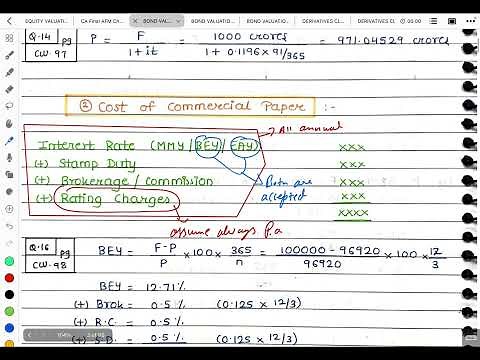 EQUITY VALUATI...
CA Final AFM CA...
BOND VALUATIO...
BOND VALUATIO...
BOND VALUATIO...
DERIVATIVES CL...
DERIVATIVES CL...
00:00
Q.14 pg
CW.97
P = F / 1+it = 1000 crores / 1 + 0.1196 x 91/365 = 971.04529 crores
② Cost of Commercial Paper :-
→ All annual
Interest Rate (MMY / BEY / EAY) xxx
(+) Stamp Duty xxx
(+) Brokerage / Commission xxx
(+) Rating Charges xxx
xxxx
Both are accepted
assume always P.a
Q.16 pg
CW.98
BEY = F-P / P x 100 x 365 / n = 100000 - 96920 / 96920 x 100 x 12 / 3
BEY = 12.71%
(+) Brok = 0.5% (0.125 x 12/3)
(+) R.C. = 0.5%
(+) S.D. = 0.5% (0.125 x 12/3)